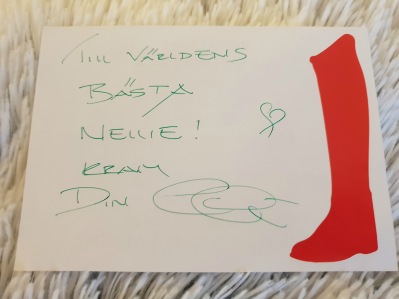 Till VÄRLDENS
BÄSTA
NELLIE!
KRAM
DIN